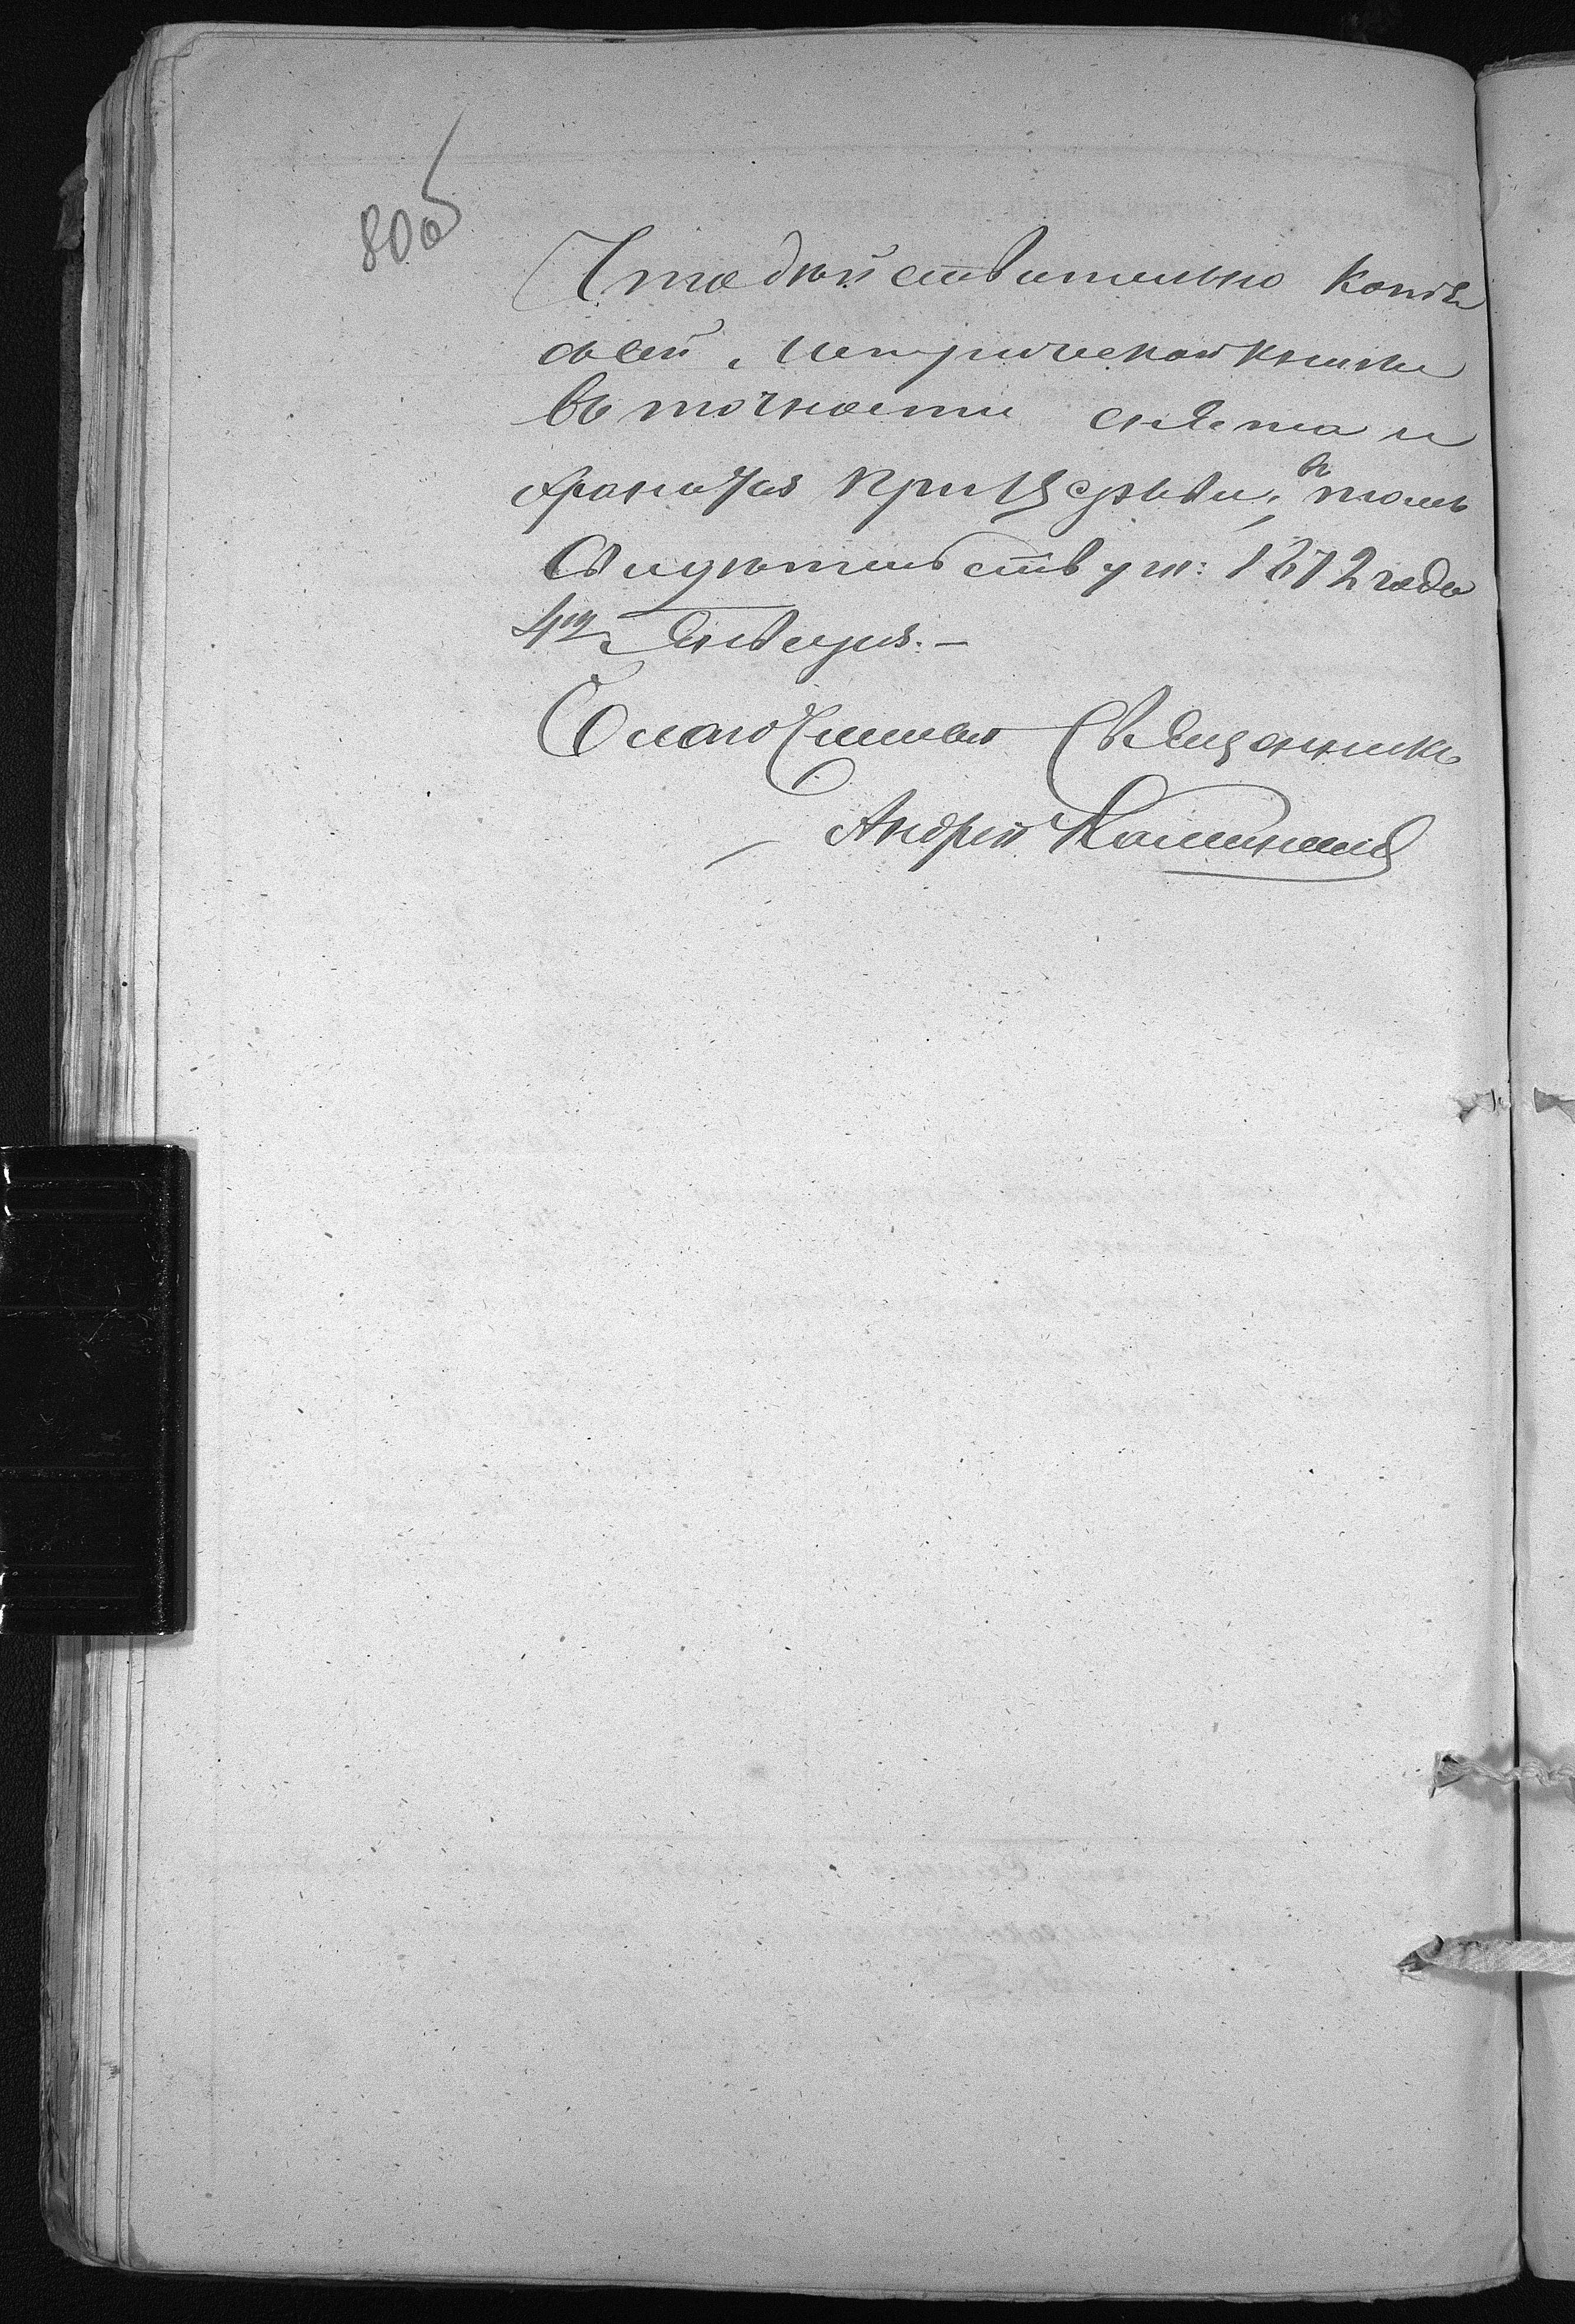 80об
Что действительно копія
съ сей Метрической книги
въ точности снята и
хранится при Церкви, въ томъ
Свидетельствую: 1872 года
4го Января. —
Благочинный Священникъ
Андрей